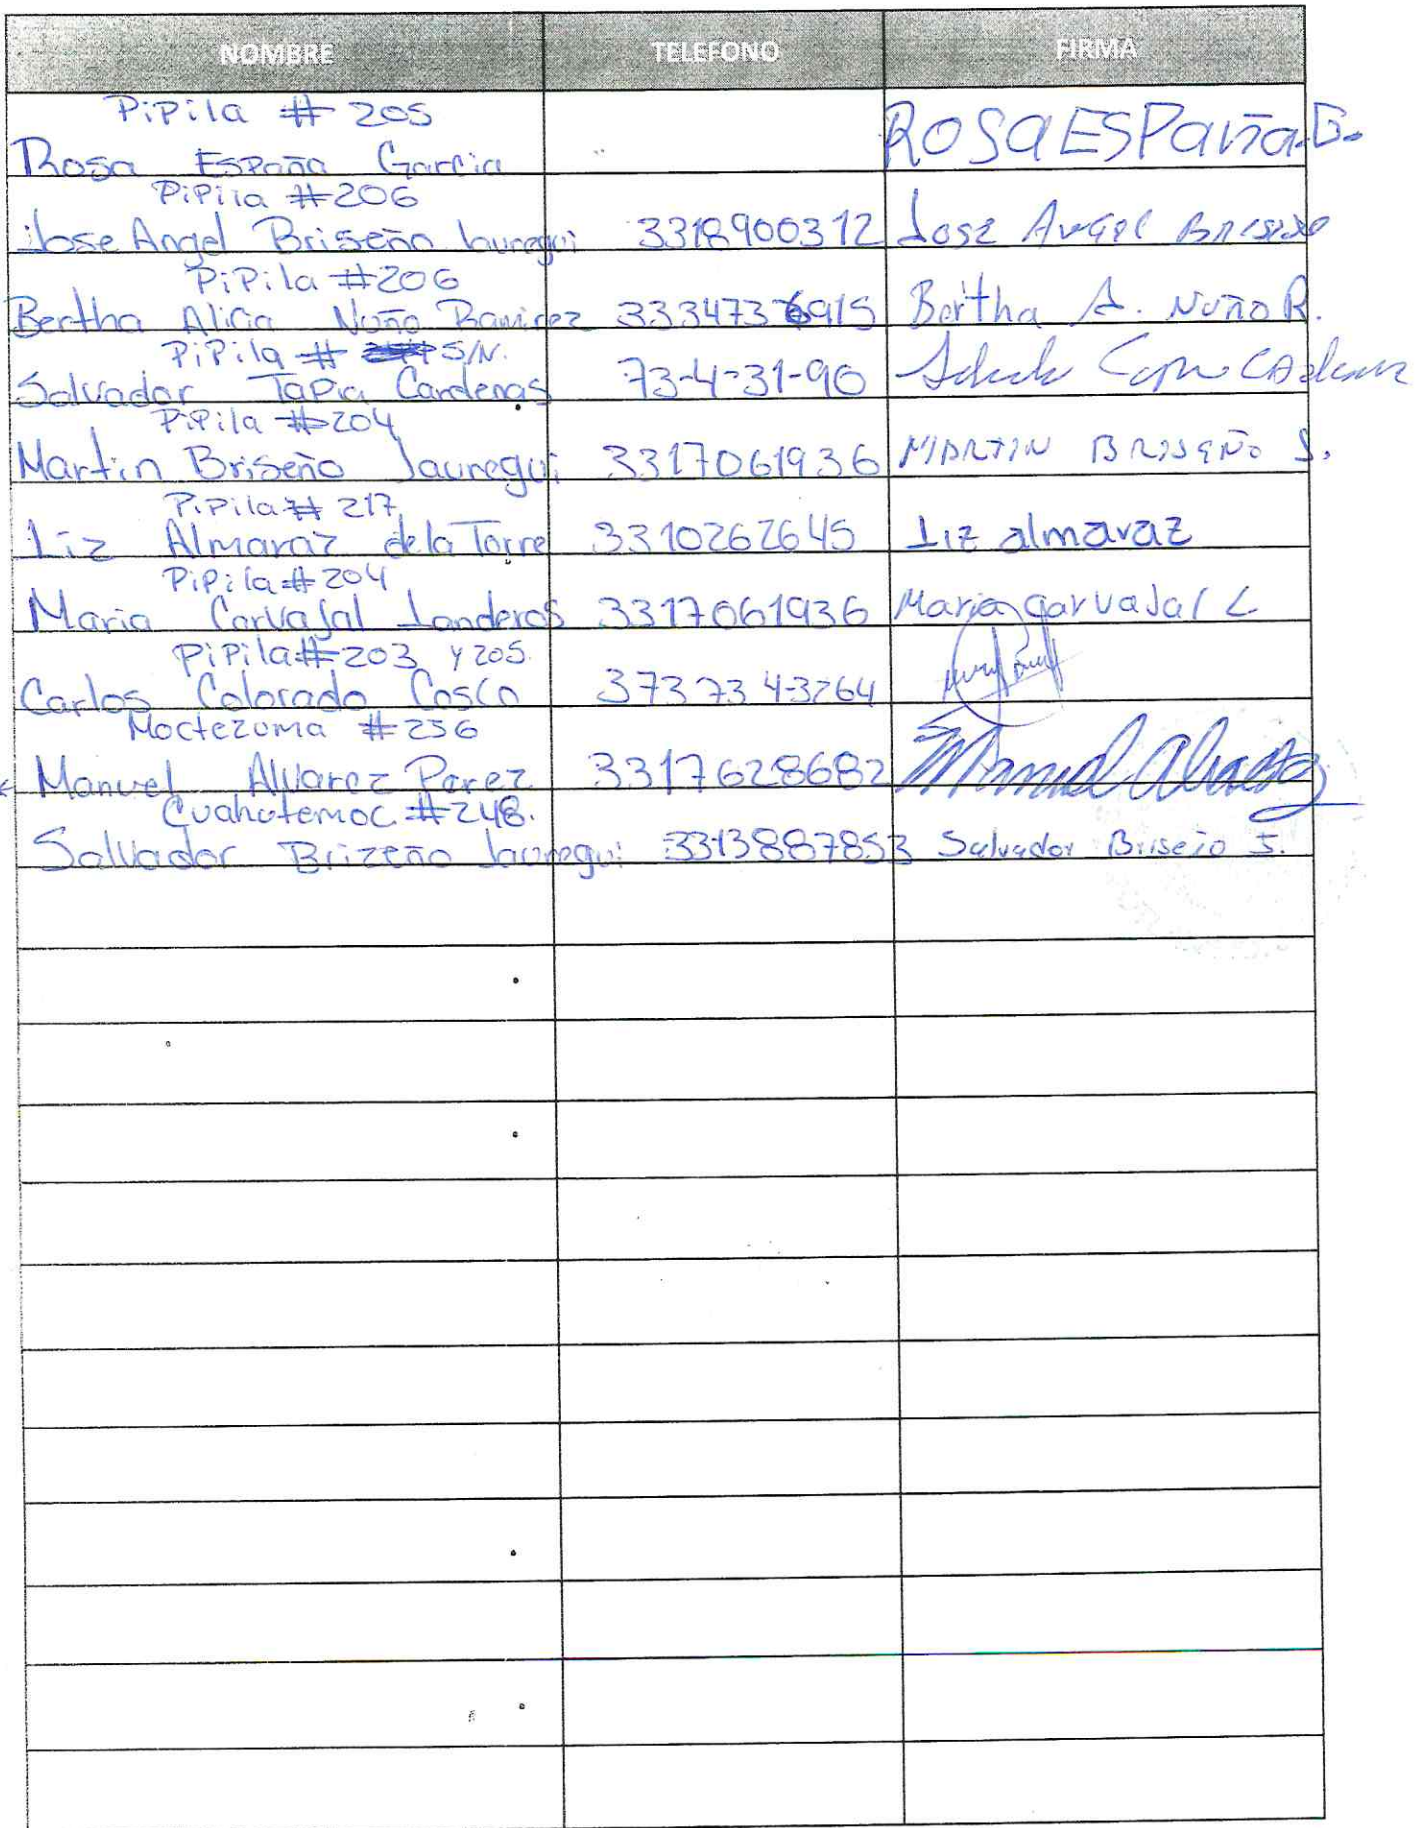 NOMBRE TELEFONO FIRMA
PiPila # 205
Rosa España Garcia ROSa ESPaña.G.
PiPila #206
Jose Angel Briseño Jauregui 3318900312 Jose Angel Briseño
PiPila #206
Bertha Alicia Nuño Ramirez 3334736915 Bertha A. Nuño R.
PiPila # S/N.
Salvador Tapia Cardenas 73-4-31-90
PiPila #204
Martin Briseño Jauregui 3317061936 MARTIN BRISEÑO J.
PiPila # 217
Liz Almaraz de la Torre 3310262645 Liz almaraz
PiPila # 204
Maria Carvajal Landeros 3317061936 Maria Carvajal L
PiPila # 203 y 205.
Carlos Colorado Cosco 37373 43264
Moctezuma #256
Manuel Alvarez Perez 3317628682 Manuel Alvarez
Cuahotemoc #248.
Sallvador Brizeño Jauregui 3313887853 Salvador Briseño J.